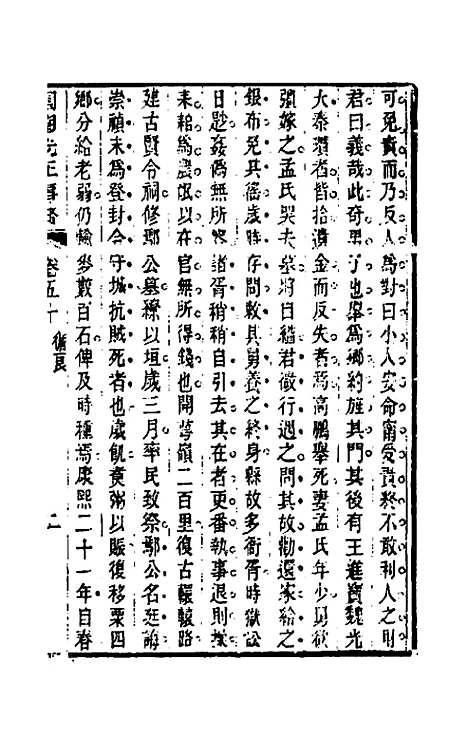 可免責而乃反人爲對曰小人安命甯受責終不敢利人之財
君曰義哉此奇男子也舉爲鄉約旌其門其後有王進寶魏光
大秦瓚者皆拾遺金而反失者焉高鵬舉死妻孟氏年少舅欲
彊嫁之孟氏哭夫墓將自縊君微行遇之問其故勸還家給之
銀布免其徭歲時存問敕其舅養之終身縣故多衙胥時獄訟
日尠姦僞無所容諸胥稍稍自引去其在者更番執事退則操
耒耜爲農氓以在官無所得錢也開萼嶺二百里復古轘轅路
建古賢令祠修鄢公墓繚以垣歲三月率民致祭鄢公名廷誨
崇禎末爲登封令守城抗賊死者也歲飢煑粥以賑復移粟四
鄉分給老弱仍輸穀數百石俾及時種焉康熙二十一年自春
國朝先正事略 卷五十 循良 二